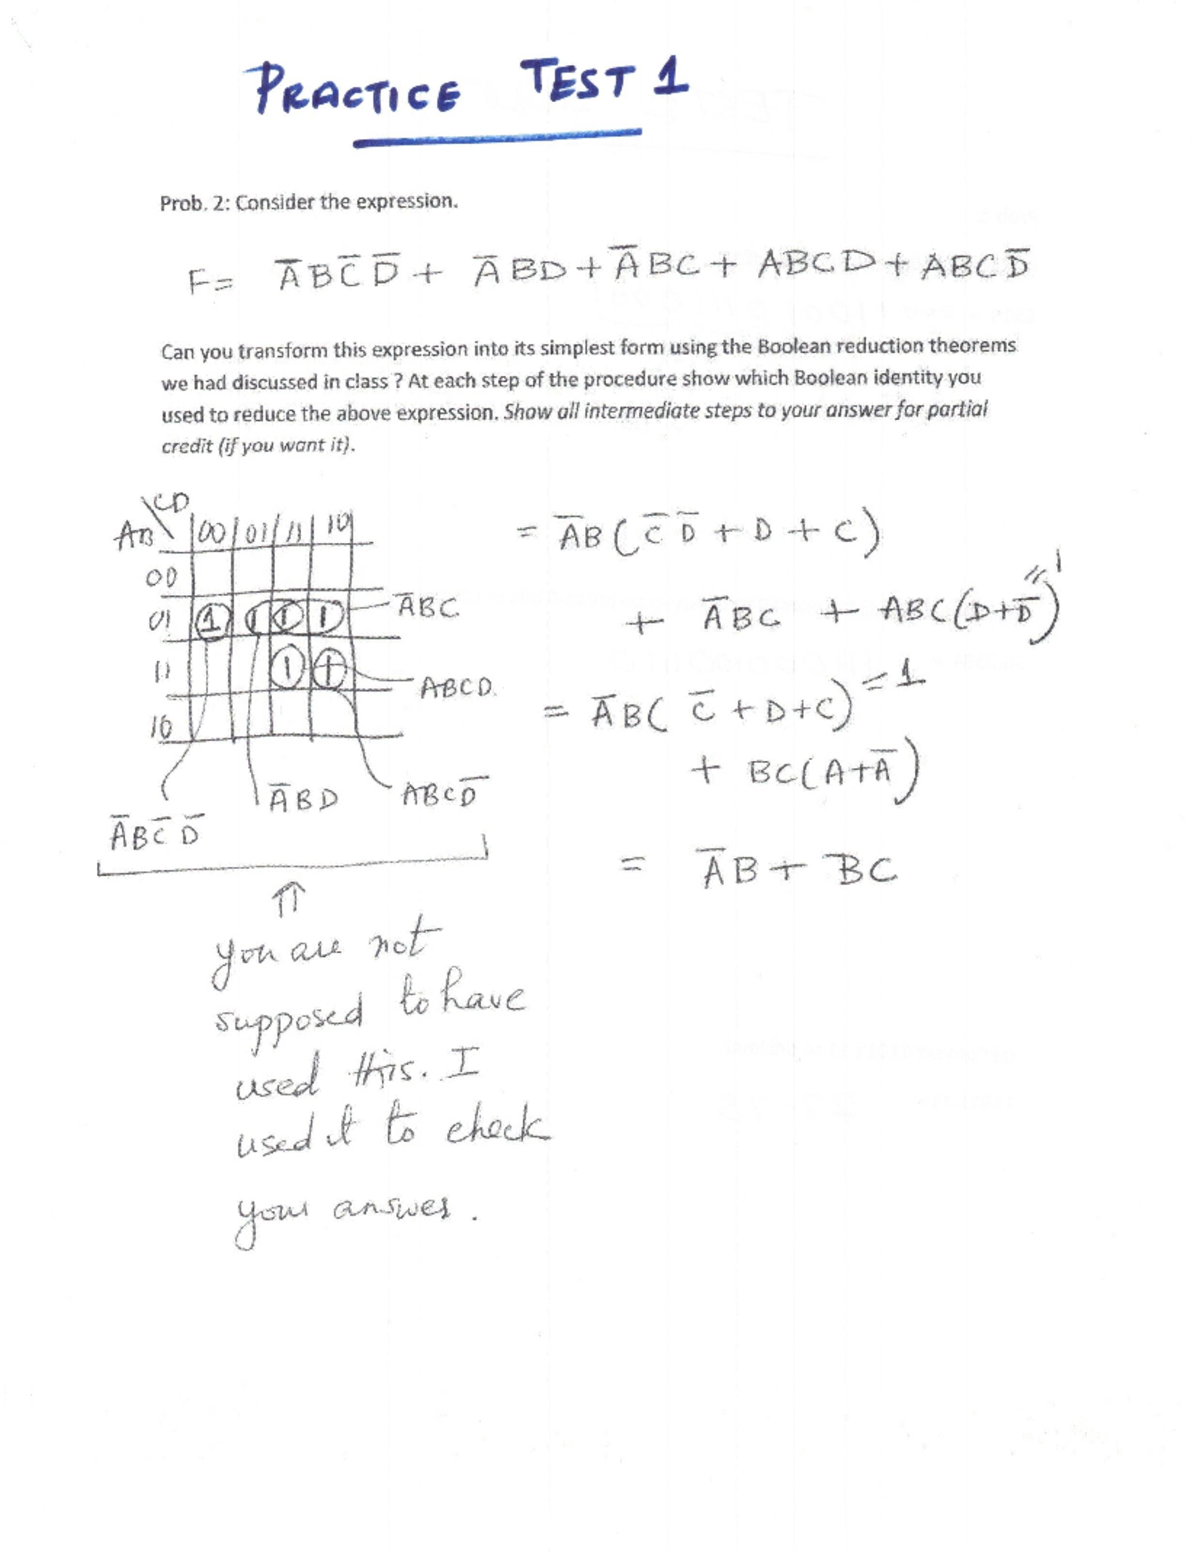 PRACTICE TEST 1
Prob. 2: Consider the expression.
F= A̅BC̅D̅ + A̅BD + A̅BC + ABCD + ABCD̅
Can you transform this expression into its simplest form using the Boolean reduction theorems
we had discussed in class ? At each step of the procedure show which Boolean identity you
used to reduce the above expression. Show all intermediate steps to your answer for partial
credit (if you want it).
CD
AB 00 01 11 10
00
01 1 1 1 1 A̅BC
11 1 1 ABCD.
10
A̅BD ABCD̅
A̅BC̅D̅
= A̅B(C̅D̅ + D + C)
+ A̅BC + ABC(D+D̅) =1
= A̅B(C̅ + D+C) =1
+ BC(A+A̅)
= A̅B + BC
⇑
you are not
supposed to have
used this. I
used it to check
your answer.